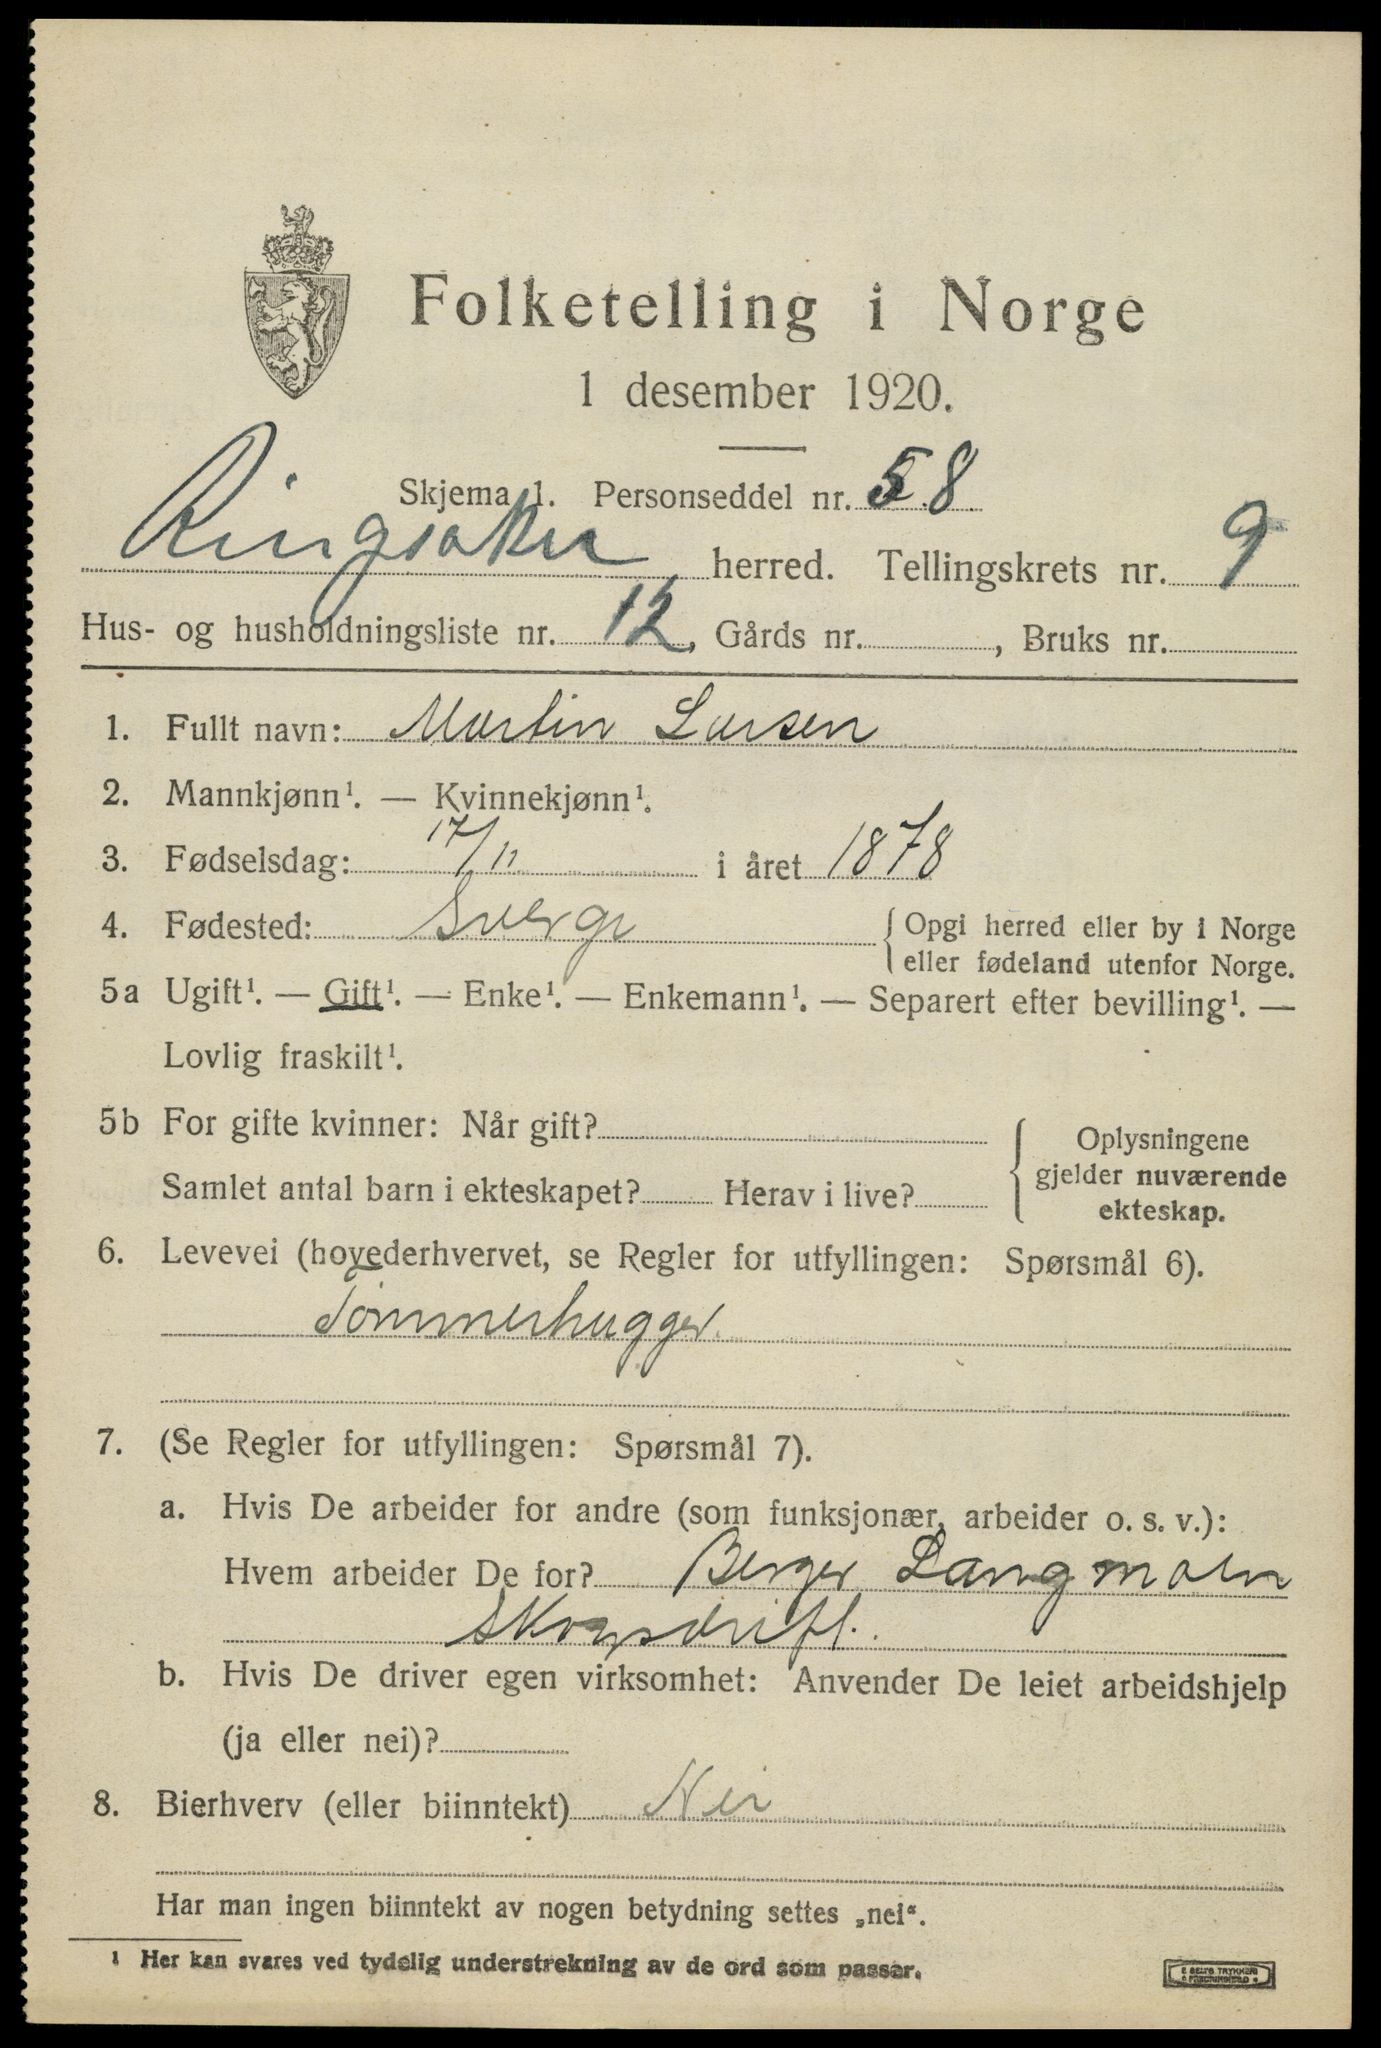 Folketelling i Norge
1 desember 1920.
Skjema 1. Personseddel nr. 58
Ringsaker herred. Tellingskrets nr. 9
Hus- og husholdningsliste nr. 12, Gårds nr. , Bruks nr.
1. Fullt navn: Martin Larsen
2. Mannkjønn¹. — Kvinnekjønn¹.
3. Fødselsdag: 17/11 i året 1878
4. Fødested: Sverge { Opgi herred eller by i Norge
eller fødeland utenfor Norge.
5a Ugift¹. — Gift¹. — Enke¹. — Enkemann¹. — Separert efter bevilling¹. —
Lovlig fraskilt¹.
5b For gifte kvinner: Når gift?
Samlet antal barn i ekteskapet? Herav i live?
{ Oplysningene
gjelder nuværende
ekteskap.
6. Levevei (hovederhvervet, se Regler for utfyllingen: Spørsmål 6).
Tømmerhugger.
7. (Se Regler for utfyllingen: Spørsmål 7).
a. Hvis De arbeider for andre (som funksjonær, arbeider o. s. v.):
Hvem arbeider De for? Berger Langmoen
Skogsdrift.
b. Hvis De driver egen virksomhet: Anvender De leiet arbeidshjelp
(ja eller nei)?
8. Bierhverv (eller biinntekt) Nei
Har man ingen biinntekt av nogen betydning settes „nei“.
¹ Her kan svares ved tydelig understrekning av de ord som passer.